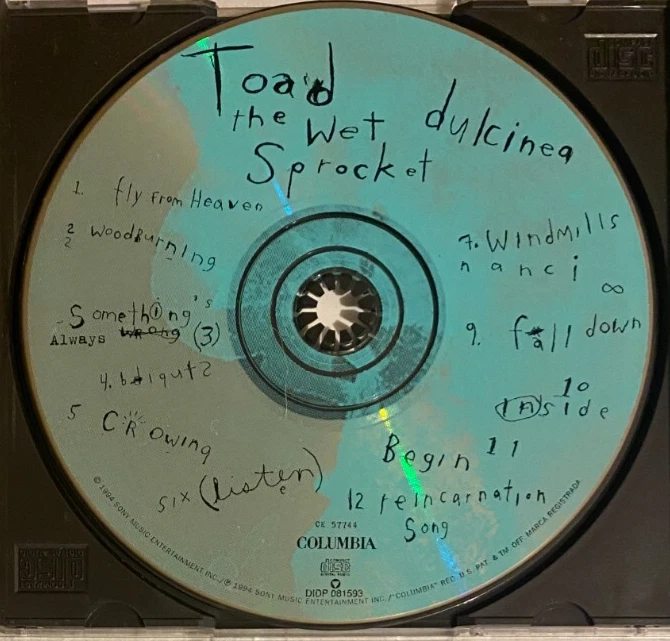 Toad
the Wet
Sprocket
dulcinea
1. fly From Heaven
2 woodBurning
2
Something's
Always wrong (3)
4.
5 CROwing
six (listen)
7. WindMills
nanci
∞
9. fall down
10
Inside
Begin 11
12 reincarnation
Song
CK 57744
COLUMBIA
disc
DIDP 081593
© 1994 SONY MUSIC ENTERTAINMENT INC./℗ 1994 SONY MUSIC ENTERTAINMENT INC./"COLUMBIA" REG. U.S. PAT. & TM. OFF. MARCA REGISTRADA
disc